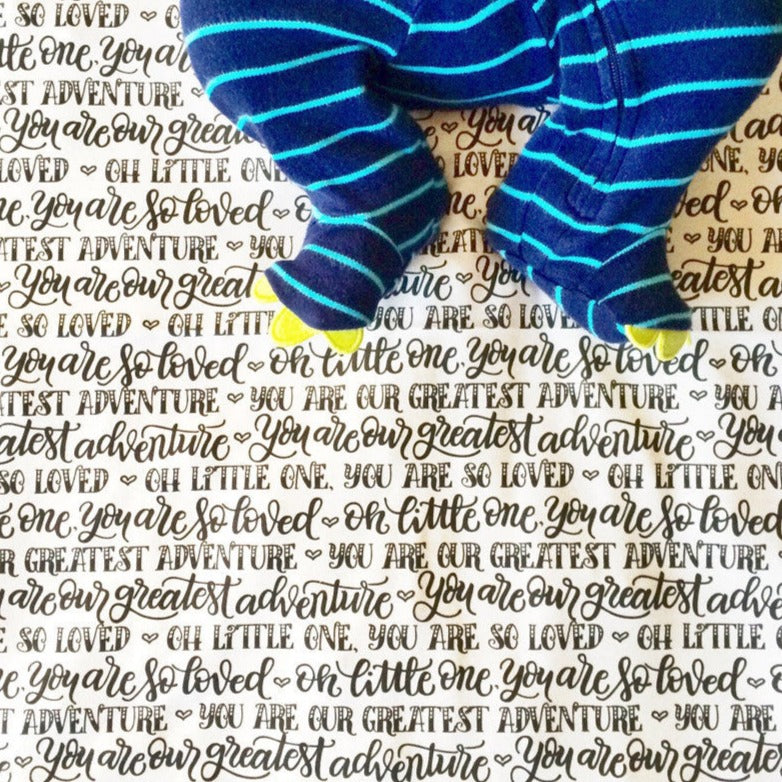 E SO LOVED ♡ OH LITTLE ONE, YOU ARE SO LOVED
little one. You are
ST ADVENTURE ♡
You are our great You a
LOVED ♡ OH LITTLE ONE LOVED ONE, YO
ne. You are so loved ♡ o ed ♡
ATEST ADVENTURE ♡ YOU EATE ♡ YOU A
You are our great ture ♡ You eatest a
E SO LOVED ♡ OH LITT YOU ARE SO LOVE TTLE ONE
You are so loved ♡ oh little one. You are so loved ♡ oh
TEST ADVENTURE ♡ YOU ARE OUR GREATEST ADVENTURE ♡ YOU A
atest adventure ♡ You are our greatest adventure ♡ You
SO LOVED ♡ OH LITTLE ONE, YOU ARE SO LOVED ♡ OH LITTLE ON
e one. You are so loved ♡ oh little one. You are so loved
R GREATEST ADVENTURE ♡ YOU ARE OUR GREATEST ADVENTURE
u are our greatest adventure ♡ You are our greatest adve
E SO LOVED ♡ OH LITTLE ONE, YOU ARE SO LOVED ♡ OH LITTLE
e. You are so loved ♡ oh little one. You are so loved ♡
T ADVENTURE ♡ YOU ARE OUR GREATEST ADVENTURE ♡ YOU ARE
You are our greatest adventure ♡ You are our greatest